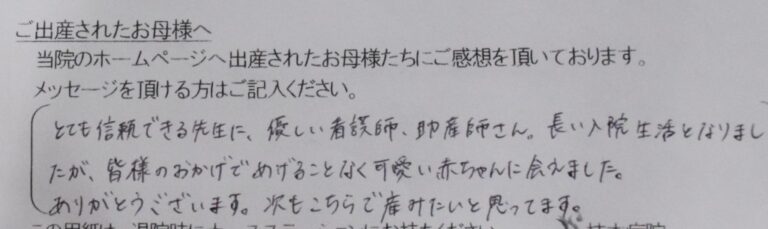 ご出産されたお母様へ
当院のホームページへ出産されたお母様たちにご感想を頂いております。
メッセージを頂ける方はご記入ください。
とても信頼できる先生に、優しい看護師、助産師さん。長い入院生活となりまし
たが、皆様のおかげでめげることなく可愛い赤ちゃんに会えました。
ありがとうございます。次もこちらで産みたいと思ってます。